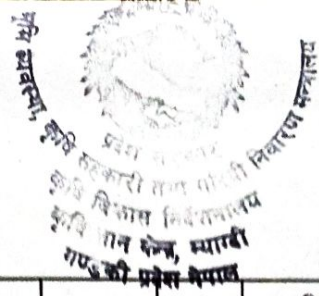 भूमि व्यवस्था, कृषि सहकारी तथा गरिबी निवारण मन्त्रालय
प्रदेश सरकार
कृषि विकास निर्देशनालय
कृषि ज्ञान केन्द्र, म्याग्दी
गण्डकी प्रदेश नेपाल